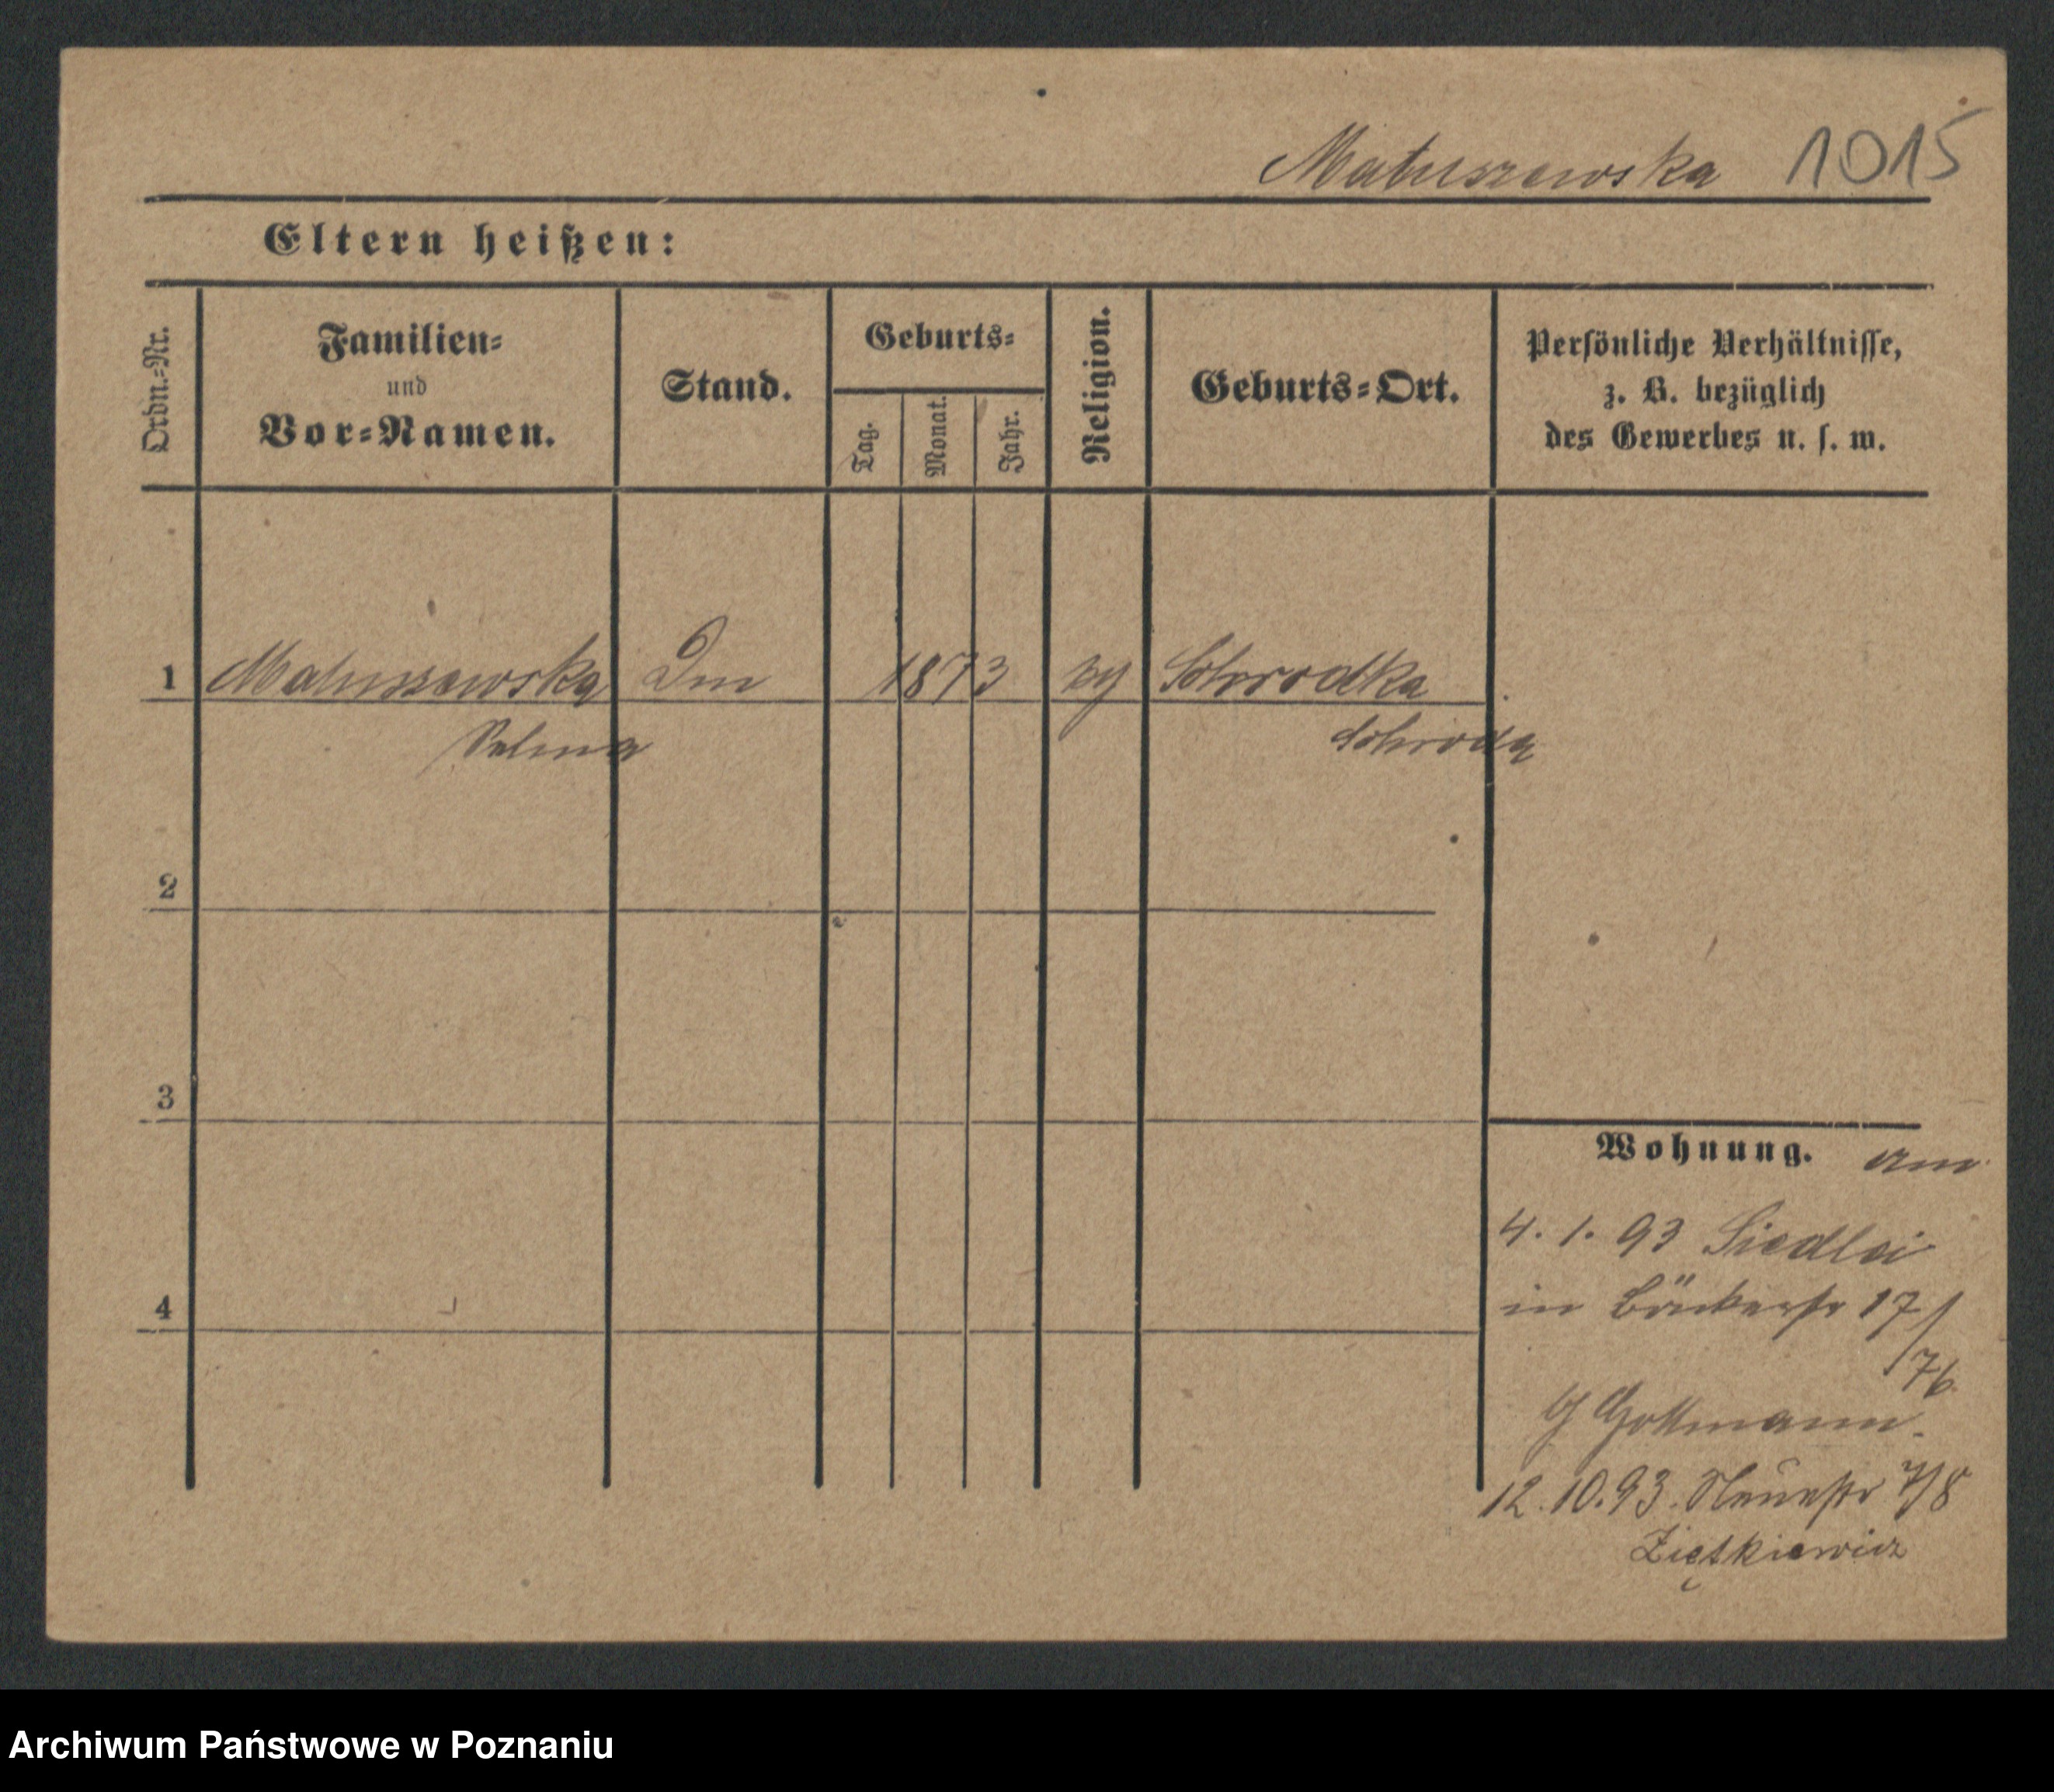 Matuszewska 1015
Eltern heißen:
Ordn.-Nr.
Familien-
und
Vor-Namen.
Stand.
Geburts-
Tag.
Monat.
Jahr.
Religion.
Geburts-Ort.
Persönliche Verhältnisse,
z. B. bezüglich
des Gewerbes u. s. w.
1 Matuszewska 1873 Schrodka
Selma Schroda
2
3
4
Wohnung.
4. 1. 93
in Bäckerstr 17/
76
Gottmann
12.10.93. Neuestr 7/8
Ziętkiewicz
Archiwum Państwowe w Poznaniu